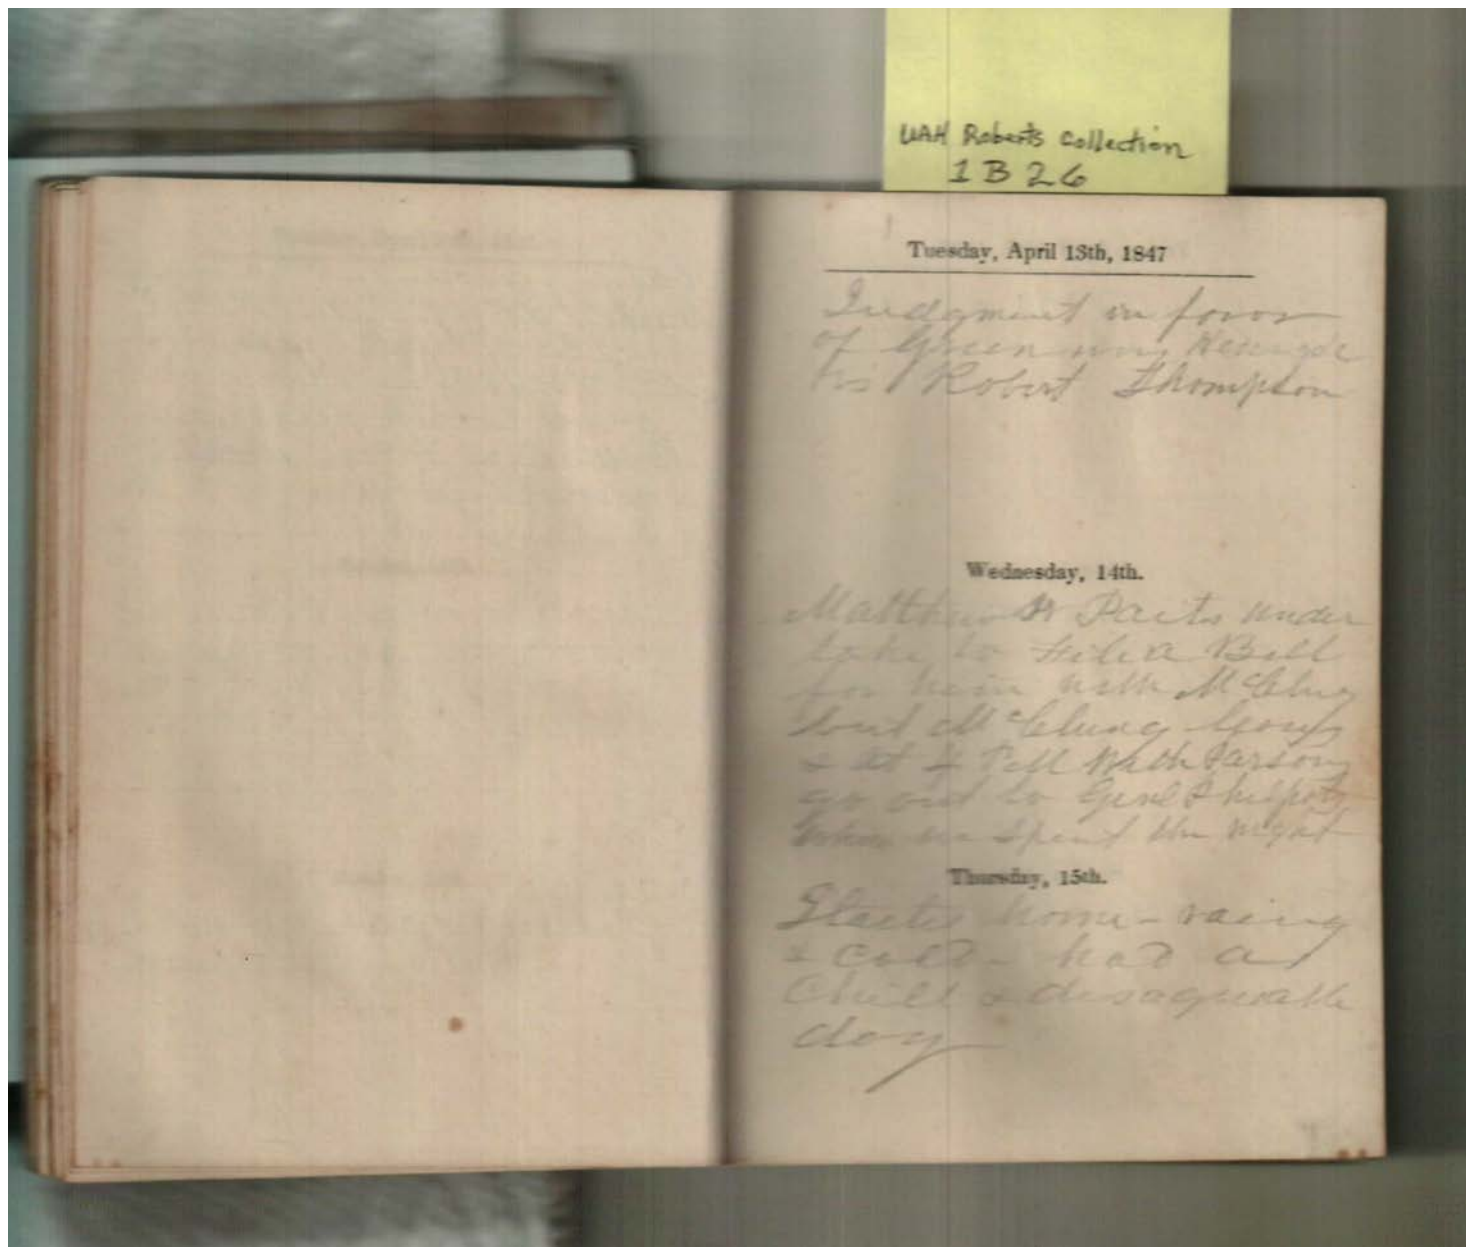 UAH Roberts Collection
1B26
Tuesday, April 13th, 1847
Judgment in favor
of Green
vs Robert Thompson
Wednesday, 14th.
Matthew Parts under
take to File a Bill
for him with McClung
but McClung
& at 4 P.M. With Parsons
go out to Genl Philpots
where we spent the night
Thursday, 15th.
home - rainy
& cold - had a
Chill & disagreeable
day